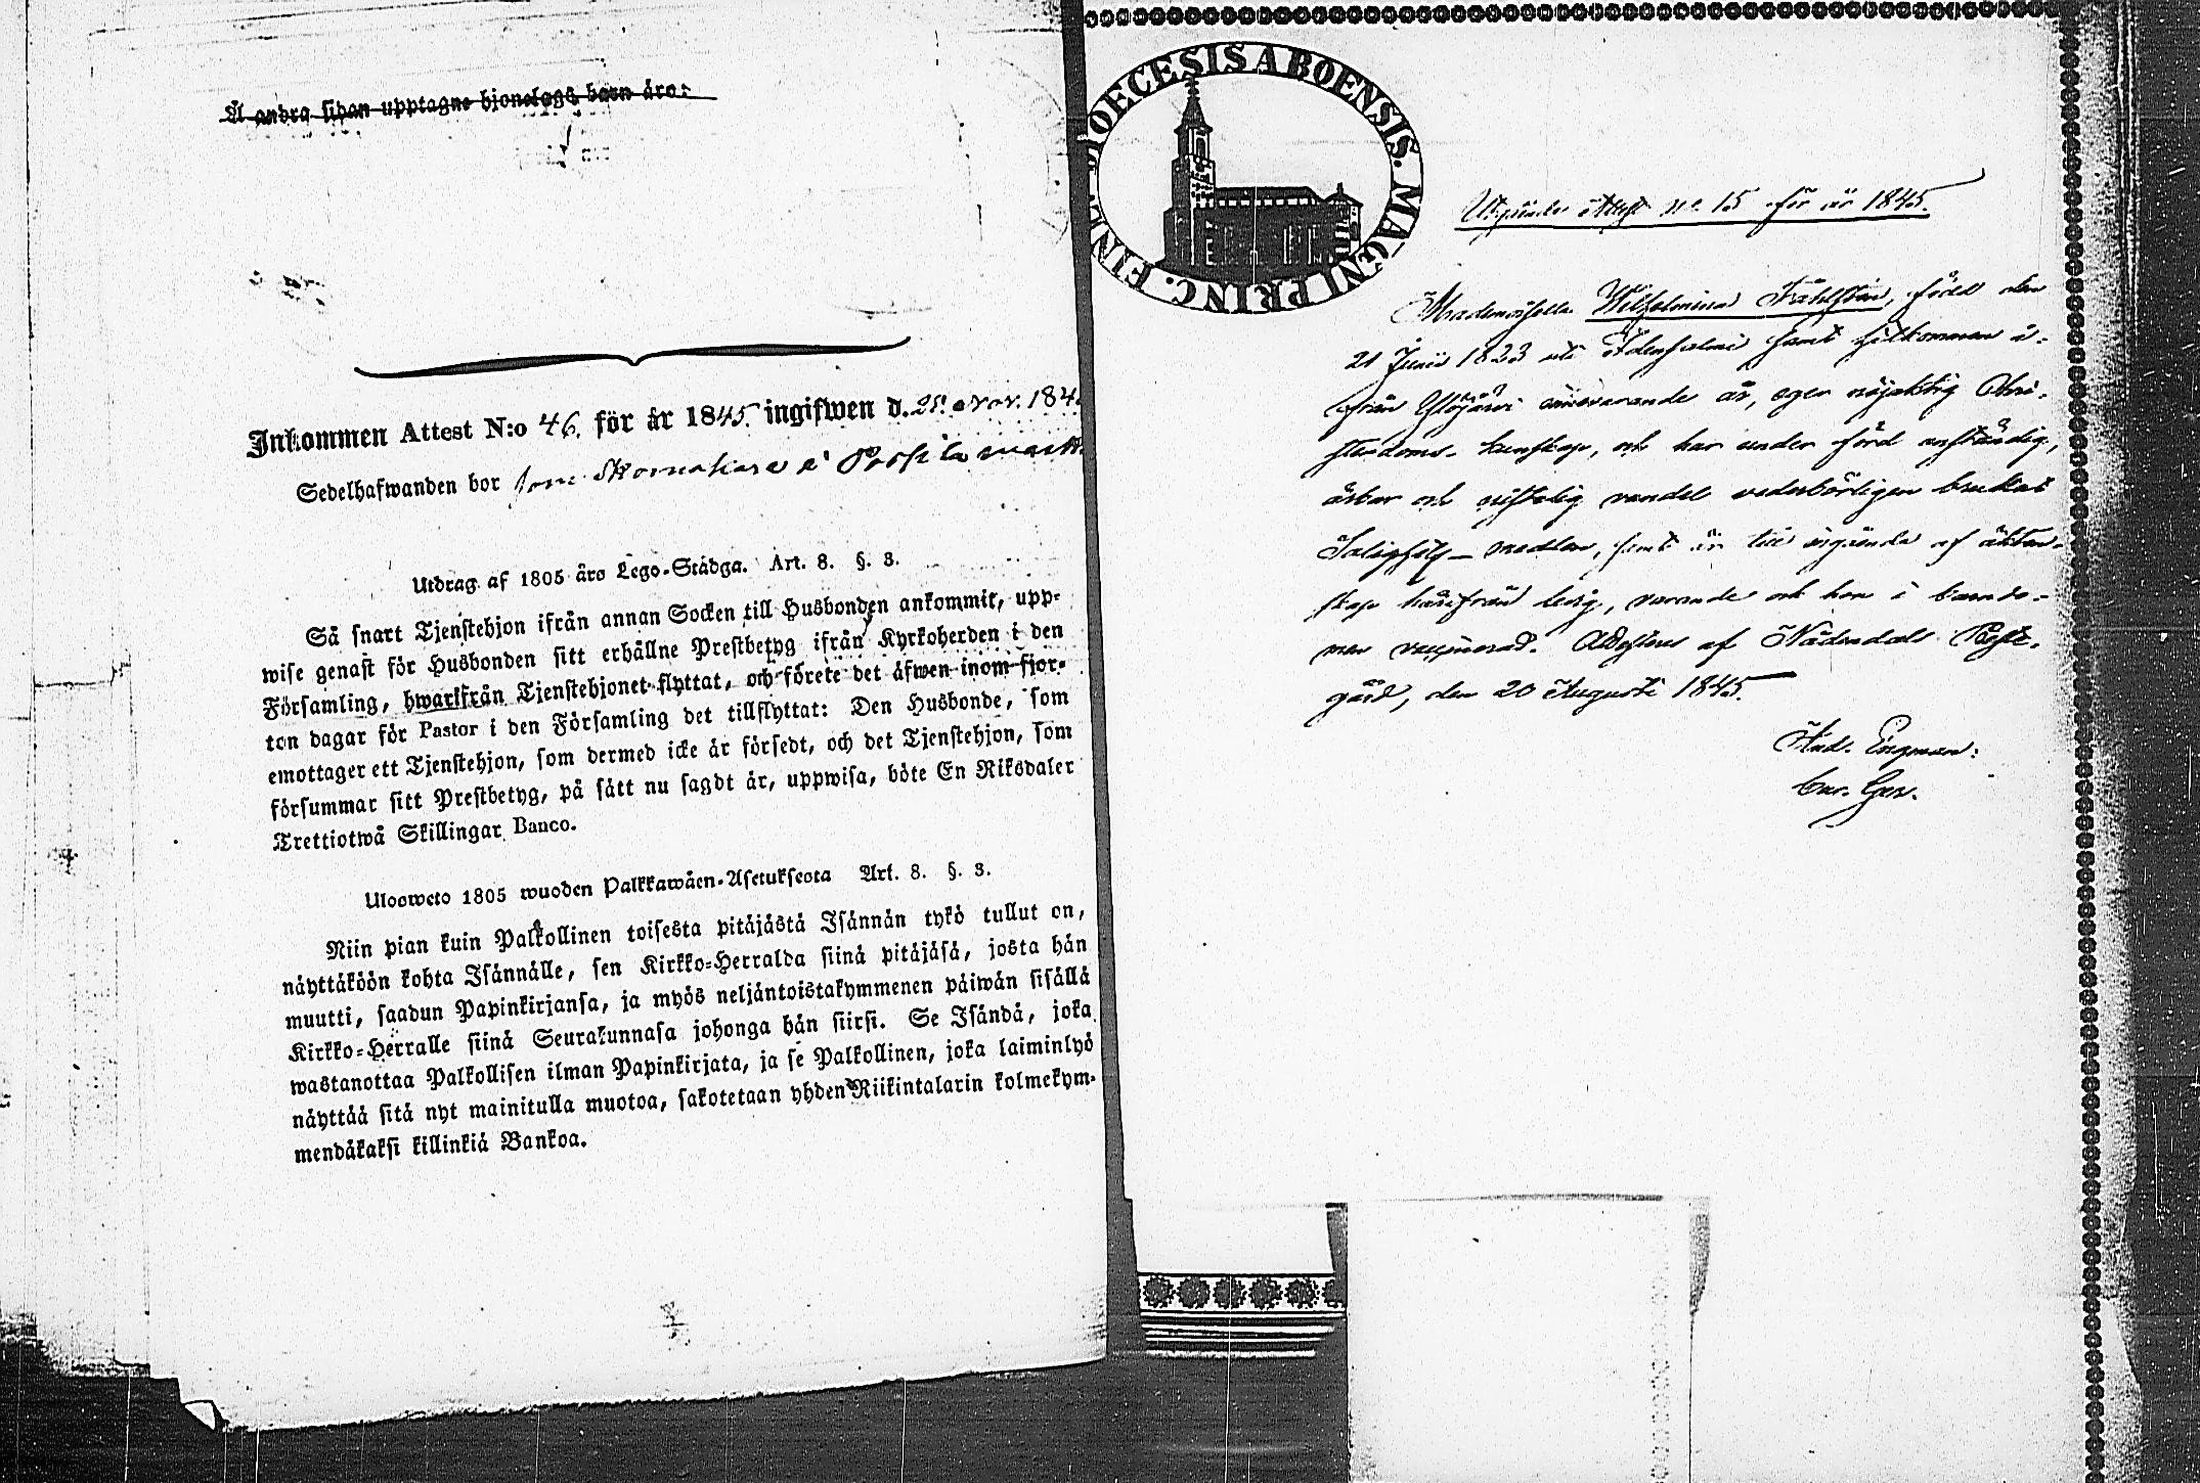 Å andra sidan upptagne hjonelags barn äro:
Inkommen Attest N:o 46. för år 1845 ingifwen d. 25 Nov. 184
Sedelhafwanden bor som Skomakare i
Utdrag af 1805 års Lego-Städga. Art. 8. §. 3.
Så snart Tjenstehjon ifrån annan Socken till Husbonden ankommit, upp-
wise genast för Husbonden sitt erhållne Prestbetyg ifrån Kyrkoherden i den
Församling, hwarifrån Tjenstehjonet flyttat, och förete det äfwen inom fjor-
ton dagar för Pastor i den Församling det tillflyttat: Den Husbonde, som
emottager ett Tjenstehjon, som dermed icke är försedt, och det Tjenstehjon, som
försummar sitt Prestbetyg, på sätt nu sagdt är, uppwisa, böte En Riksdaler
Trettiotwå Skillingar Banco.
Uloswcto 1805 wuoden Palkkawäen-Asetuksesta Art. 8. §. 3.
Niin pian kuin Palkollinen toisesta pitäjästä Isännän tykö tullut on,
näyttäköön kohta Isännälle, sen Kirkko-Herralda siinä pitäjäsä, josta hän
muutti, saadun Papinkirjansa, ja myös neljäntoistakymmenen päiwän sisällä
Kirkko-Herralle siinä Seurakunnasa johonga hän siirsi. Se Isändä, joka
wastanottaa Palkollisen ilman Papinkirjata, ja se Palkollinen, joka laiminlyö
näyttää sitä nyt mainitulla muotoa, sakotetaan yhden Riikintalarin kolmekym-
mendäkaksi killinkiä Bankoa.
DIOECESIS ABOENSIS. MAGNI PRINC. FINL.
Utgående Attest No. 15 för år 1845.
Mademoiselle Wilhelmina Ståhlström, född den
21 Junii 1823 uti samt hitkommen i-
från Ylöjärvi innevarande år, eger nöjaktig Chri-
stendoms-kunskap, och har under förd anständig,
ärbar och christelig vandel vederbörligen brukat
Salighets-medlen, samt är till ingående af äkten-
skap härifrån ledig, varande och hon i barndo-
men vaccinerad. Attesteras af Nådendals Preste-
gård, den 20 Augusti 1845.
And. Engman: